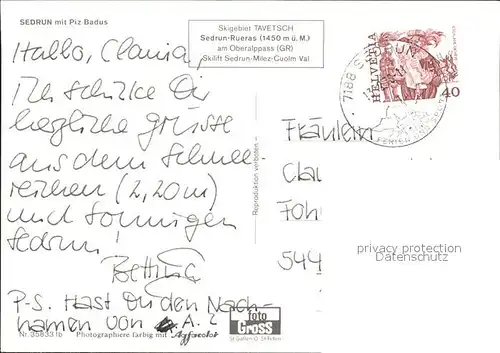 SEDRUN mit Piz Badus
Skigebiet TAVETSCH
Sedrun-Rueras (1450 m ü. M.)
am Oberalppass (GR)
Skilift Sedrun-Milez-Cuolm Val
Hallo, Claudia,
Ich schicke Dir
herzliche Grüsse
aus dem Schnee
reichen (2,20m)
und sonnigen
Sedrun!
Bettina
P.S. Hast Du den Nach-
namen von A.?
Nr. 35833 lb Photographiere farbig mit Agfacolor
Reproduktion verboten
foto
Gross
St. Gallen
HELVETIA
40
7188 SEDRUN
Fräulein
Clau
Föh
544
privacy protection
Datenschutz